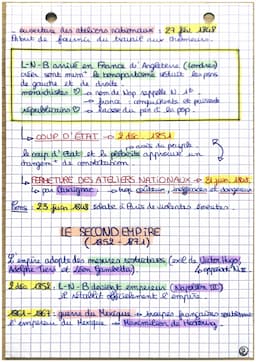 - ouverture des ateliers nationaux : 27 fév 1848
Début de fournir du travail aux chômeurs.
L-N-B arrive en France d'Angleterre (Londres)
gauche et de droite.
monarchistes ♡ → nom de Nap rappelle N. 1er
France : conquérante et puissante
républicains ♡
↳ COUP D'ÉTAT → 2 déc. 1851
le coup d'État et le plébiscite approuve un
changemt de constitution
↳ FERMETURE DES ATELIERS NATIONAUX → 21 juin 1848
↳ par Cavaignac → trop coûteux, inefficaces et dangereux
23 juin 1848 éclate à Paris de violentes émeutes.
LE SECOND EMPIRE
(1852 - 1871)
L'empire adopte des mesures restrictives (exil de Victor Hugo,
Adolphe Tiers et Léon Gambetta).
2 déc 1852 : L-N-B devient empereur (Napoléon III)
il rétablit officiellement l'empire.
1861-1867 : guerre du Mexique → troupes françaises soutiennent
l'empereur du Mexique → Maximilien de